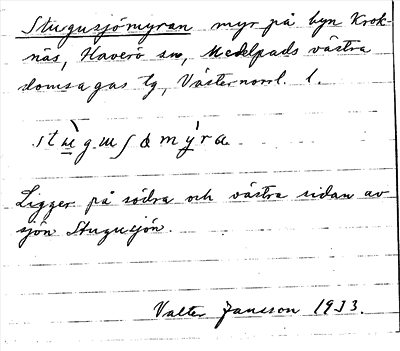 Stugusjömyran myr på byn Krok-
näs, Haverö sn, Medelpads västra
domsagas tg, Västernorrl. l.
stùguſömýra
Ligger på södra och västra sidan av
sjön Stugusjön.
Valter Jansson 1933.